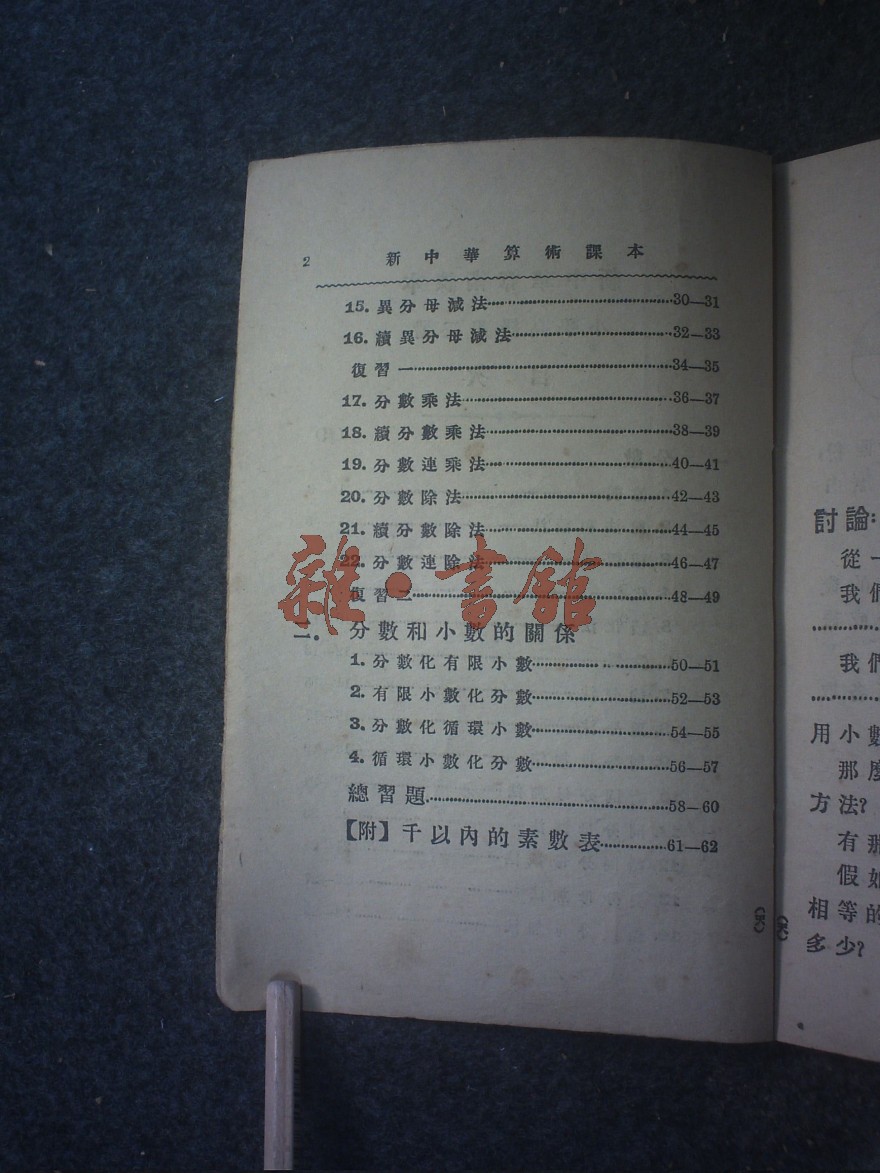 2 新中華算術課本
15. 異分母減法 30—31
16. 續異分母減法 32—33
復習一 34—35
17. 分數乘法 36—37
18. 續分數乘法 38—39
19. 分數連乘法 40—41
20. 分數除法 42—43
21. 續分數除法 44—45
22. 分數連除法 46—47
復習二 48—49
二. 分數和小數的關係
1. 分數化有限小數 50—51
2. 有限小數化分數 52—53
3. 分數化循環小數 54—55
4. 循環小數化分數 56—57
總習題 58—60
【附】千以內的素數表 61—62
雜·書館
討論:
從一
我們
我們
用小數
那麼
方法?
有那
假如
相等的
多少?